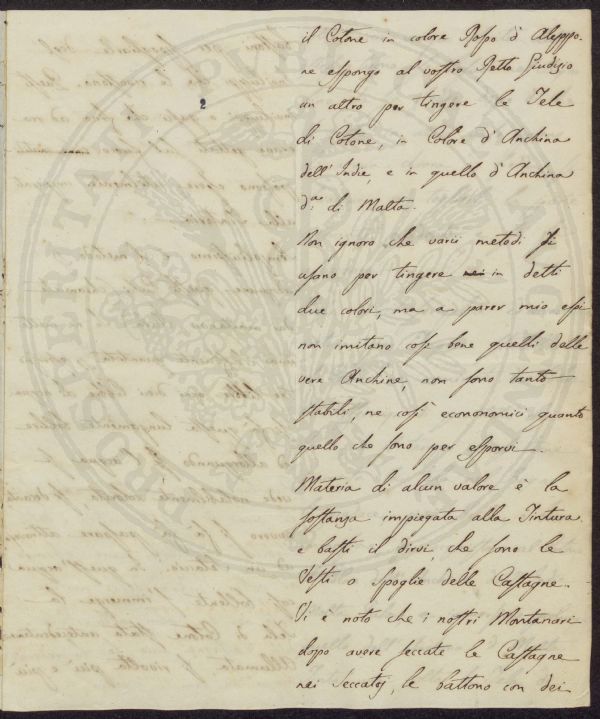 2
il Cotone in colore Rosso d'Aleppo.
ne espongo al vostro Retto Giudizio
un altro per tingere le Tele
di Cotone, in Colore d'Anchina
dell'Indie, e in quello d'Anchina
d.ª di Malta.
Non ignoro che varii metodi si
usano per tingere in detti
due colori, ma a parer mio essi
non imitano così bene quelli delle
vere Anchine, non sono tanto
stabili, ne così econonomici quanto
quello che sono per esporvi.
Materia di alcun valore è la
sostanza impiegata alla Tintura.
e basti il dirvi che sono le
Vesti o Spoglie delle Castagne.
Vi è noto che i nostri Montanari
dopo avere seccate le Castagne
nei Seccatoj, le battono con dei